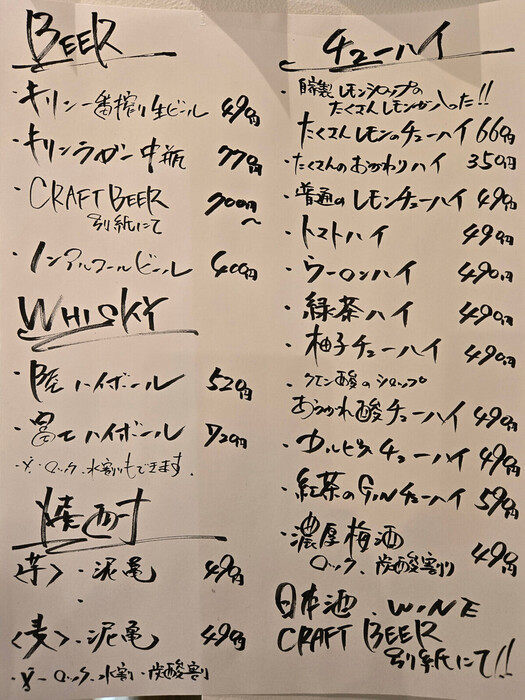 BEER
・キリン一番搾り生ビール 490円
・キリンラガー中瓶 770円
・CRAFT BEER 900円〜
別紙にて
・ノンアルコールビール 400円
WHISKY
・陸ハイボール 520円
・富士ハイボール 720円
・ロック、水割りもできます。
焼酎
〈芋〉・泥亀 490円
〈麦〉・泥亀 490円
ロック、水割・炭酸割
チューハイ
・自家製レモンシロップの
たくさんレモンが入った!!
たくさんレモンのチューハイ 660円
・たくさんのおかわりハイ 350円
・普通のレモンチューハイ 490円
・トマトハイ 490円
・ウーロンハイ 490円
・緑茶ハイ 490円
・柚子チューハイ 490円
・クエン酸のシロップ
あらかれ酸チューハイ 490円
・カルピスチューハイ 490円
・紅茶のGINチューハイ 590円
・濃厚梅酒 490円
ロック、炭酸割り
日本酒、WINE
CRAFT BEER
別紙にて!!